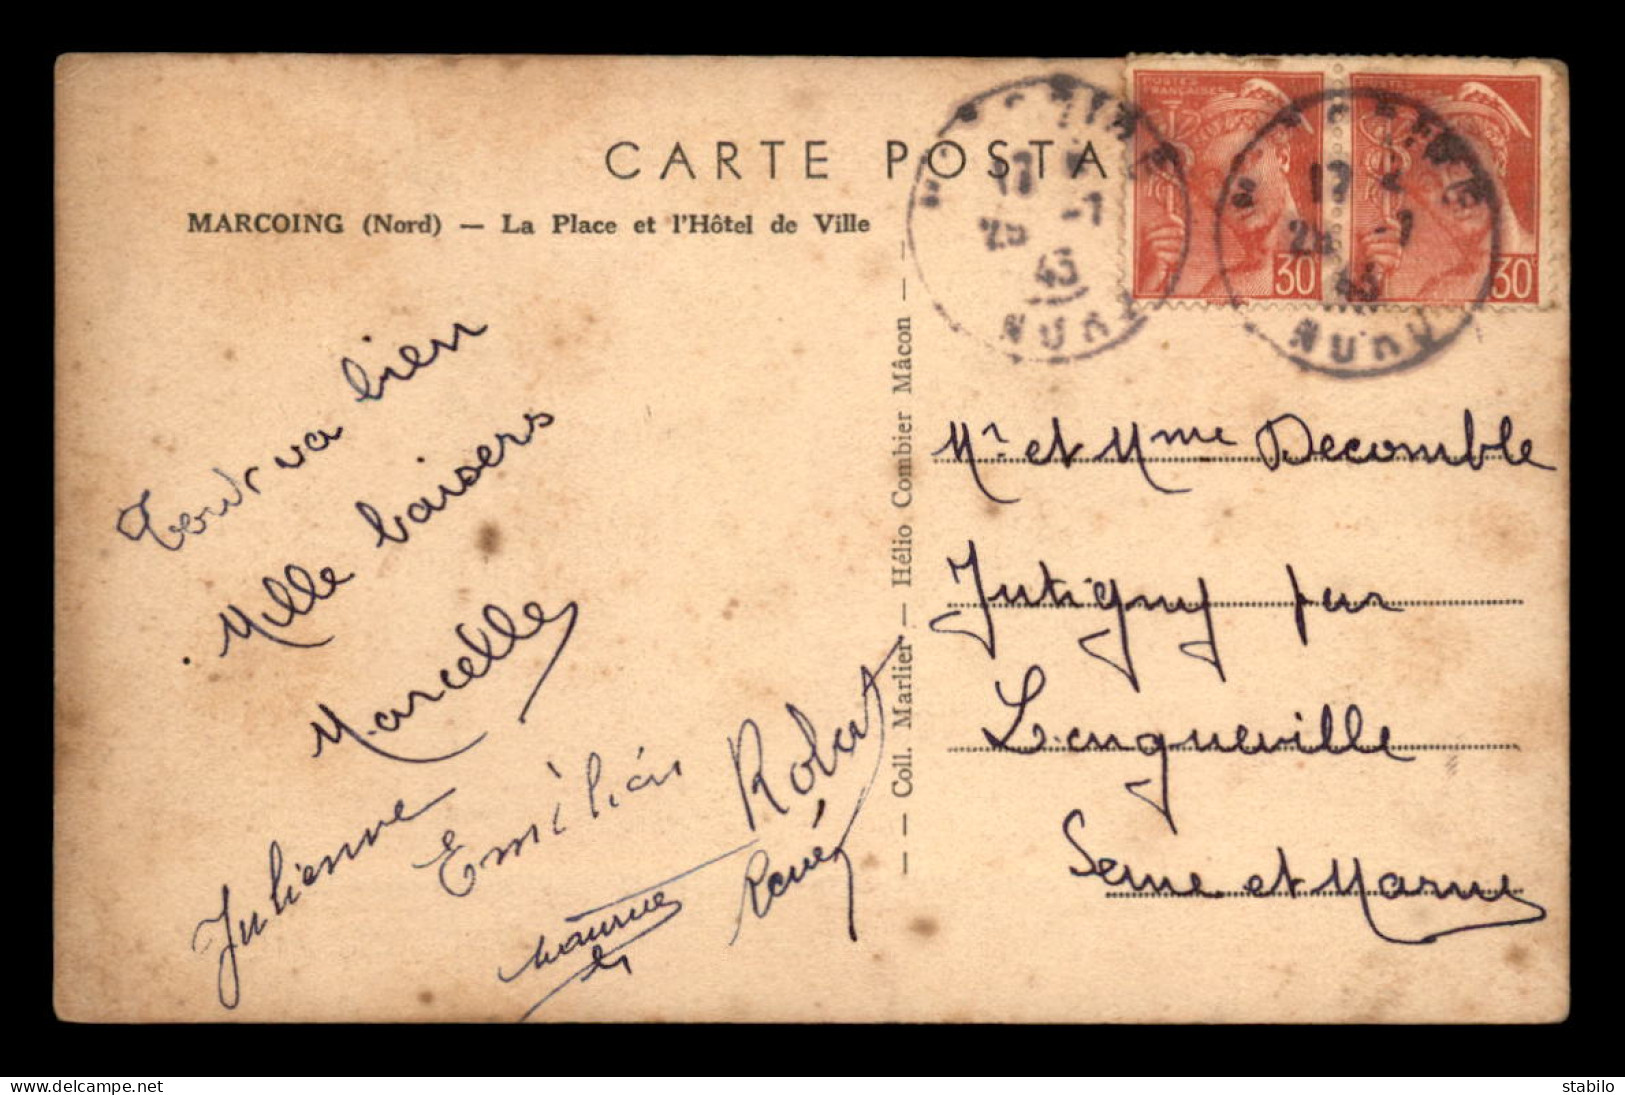 CARTE POSTA
MARCOING (Nord) — La Place et l'Hôtel de Ville
POSTES FRANÇAISES
30
30
17
25 -1
43
NORD
17
25 -1
43
NORD
Tout va bien
Mille baisers
Marcelle
Julienne
Emilien
Robert
Maurice
René
— Coll. Marlier — Hélio Combier Mâcon — —
Mr et Mme Decomble
Jutigny par
Longueville
Seine et Marne
www.delcampe.net
stabilo